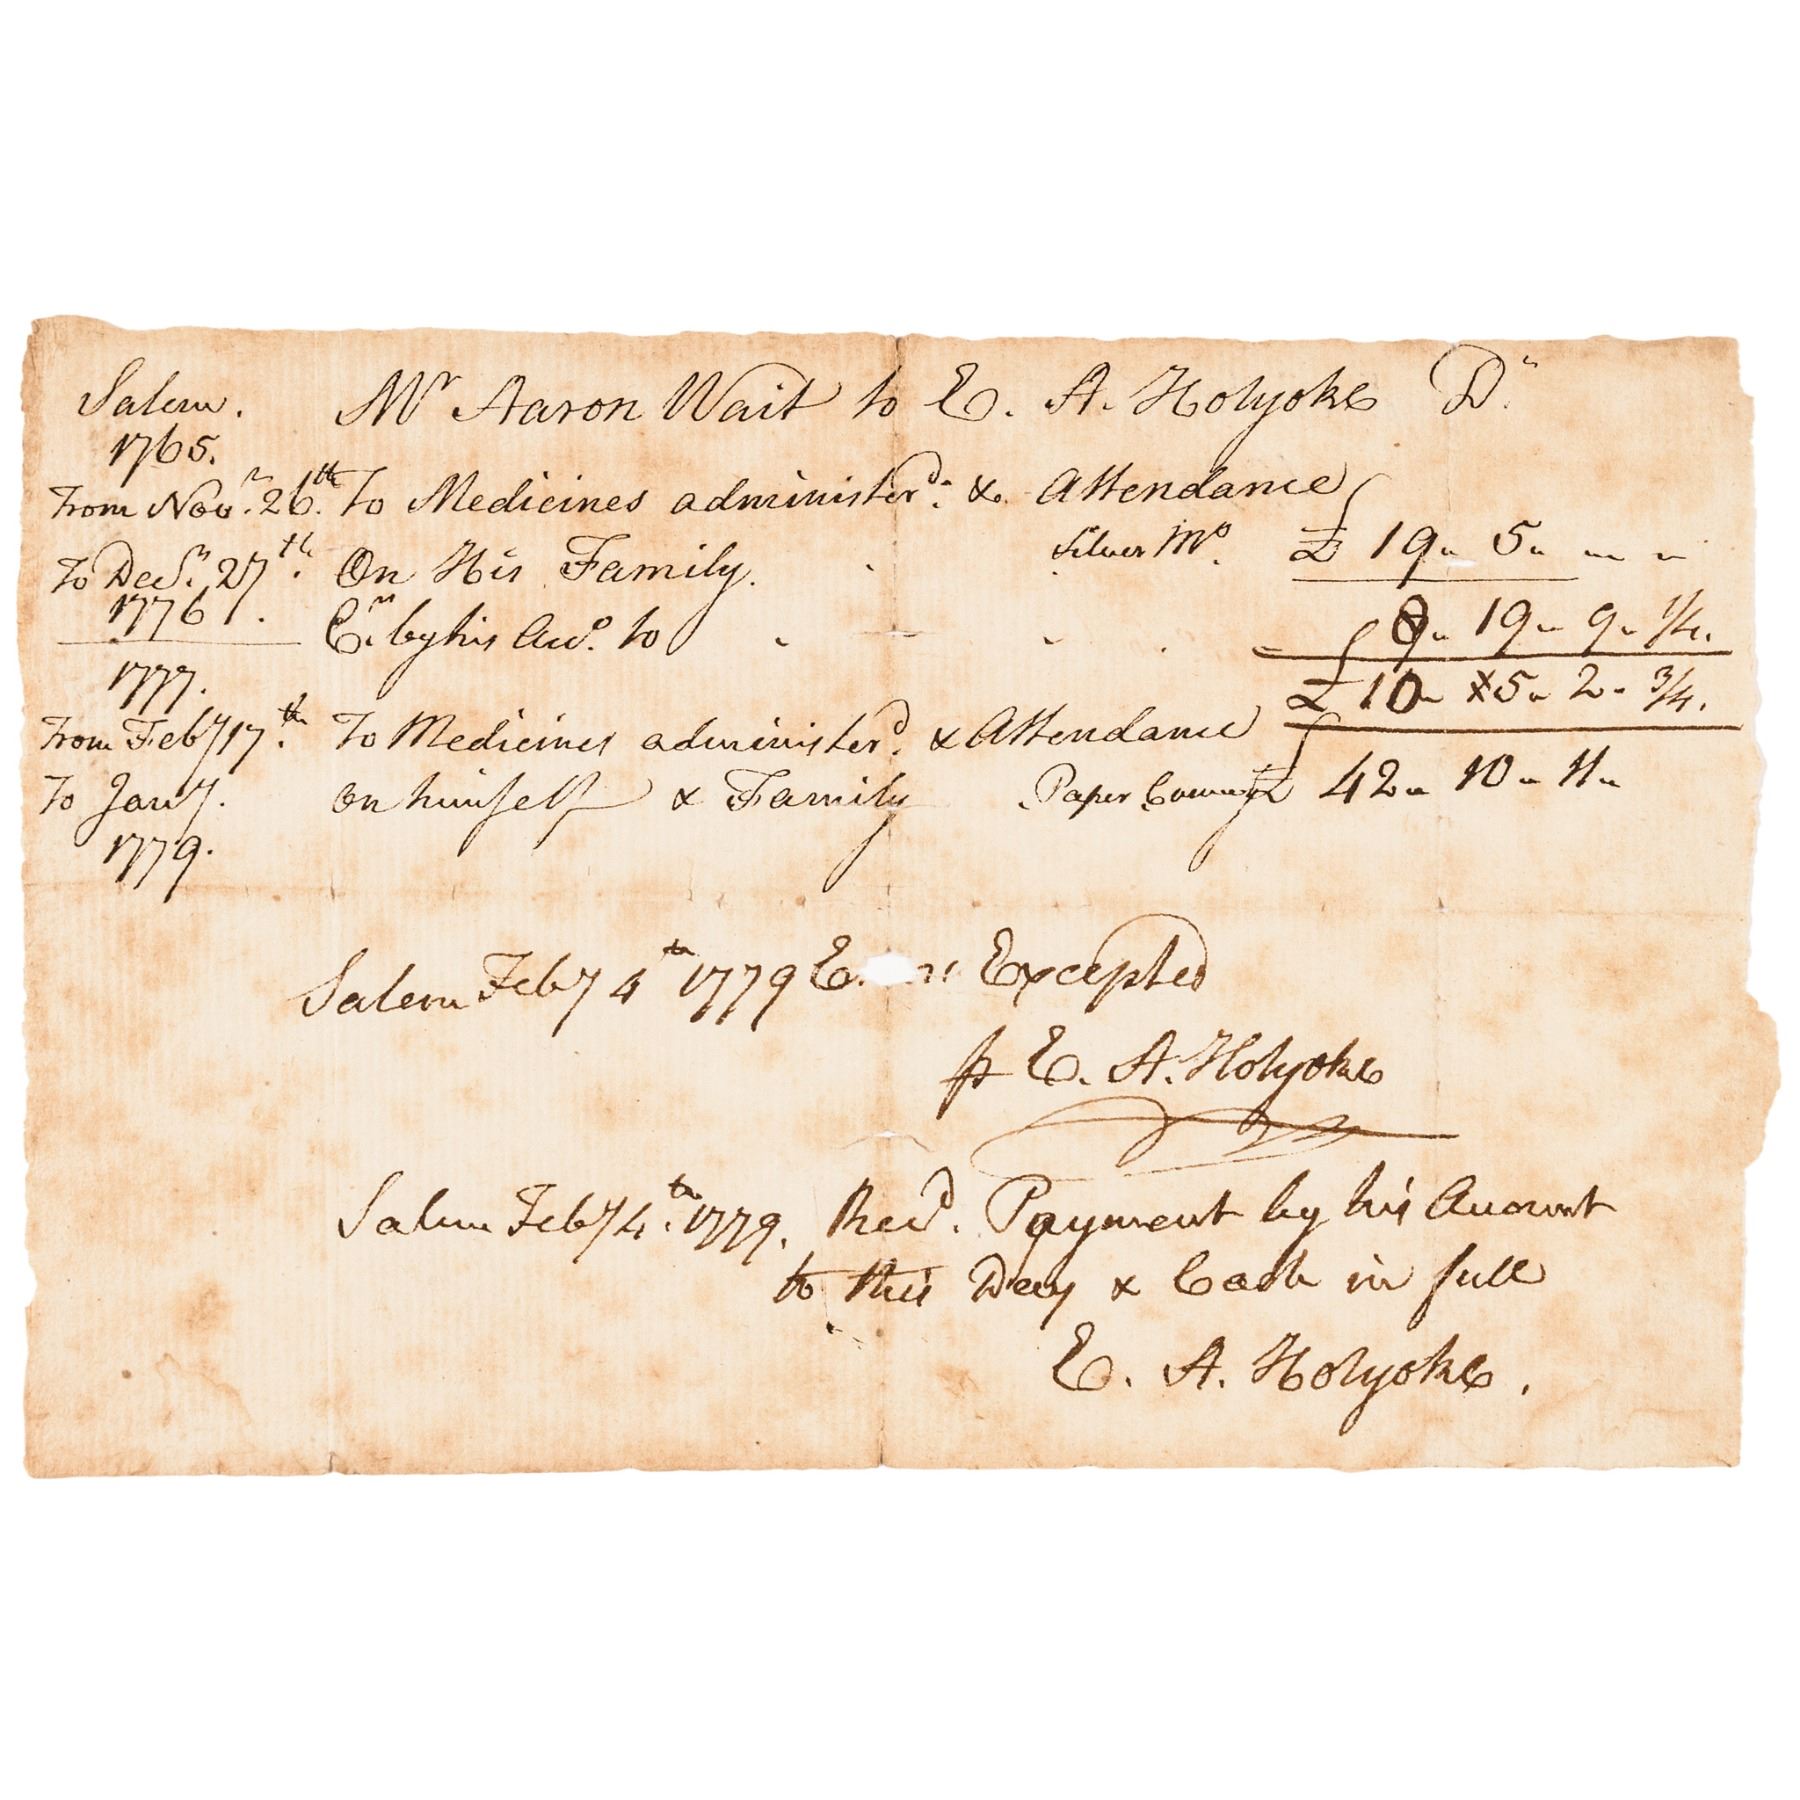 Salem. Mr Aaron Wait to E. A. Holyoke Dr
1765.
From Novr. 26th. To Medicines administerd. & Attendance
To Decr. 27th. On His Family. Silver Mo. £ 19 " 5 " — "
1776. Cr. by his Acco. to 8 " 19 " 9 " 1/4.
1777. £ 10 " 5 " 2 " 3/4.
From Feby 17th. To Medicines administerd. & Attendance
To Jany. on himself & Family . Paper £ 42 " 10 " 11 "
1779.
Salem Feby 4th 1779 Excepted
p E. A. Holyoke
Salem Feby 4th. 1779. Recd. Payment by his Account
to this Day & Cash in full
E. A. Holyoke.